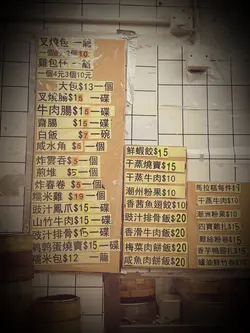 叉燒包一籠
雞包
一個4元3個10元
大包$13一個
叉燒腸$15一碟
牛肉腸$15一碟
齋腸$15一碟
白飯$7一碗
咸水角$6一個
炸雲吞$5一個
煎堆$5一個
炸春卷$5一個
糯米雞$19一個
豉汁鳳爪$15一碟
山竹牛肉$15一碟
鵪鶉蛋燒賣$15一碟
糯米包$12一籠
鮮蝦餃$15
干蒸燒賣$15
干蒸牛肉$10
潮州粉果$10
香茜魚翅餃$10
豉汁排骨飯$20
香滑牛肉飯$20
豉汁排骨飯$20
梅菜肉餅飯$20
咸魚肉餅飯$20
馬拉糕每件$
干蒸牛肉$10
潮洲粉果$10
四寶雞扎